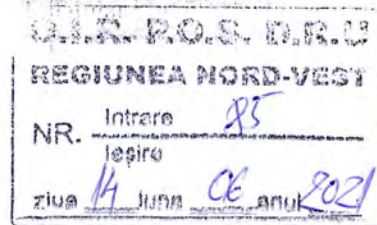 O.I.R. P.O.S. D.R.U
REGIUNEA NORD-VEST
NR. Intrare 85
Ieşire
ziua 14 luna 06 anul 2021